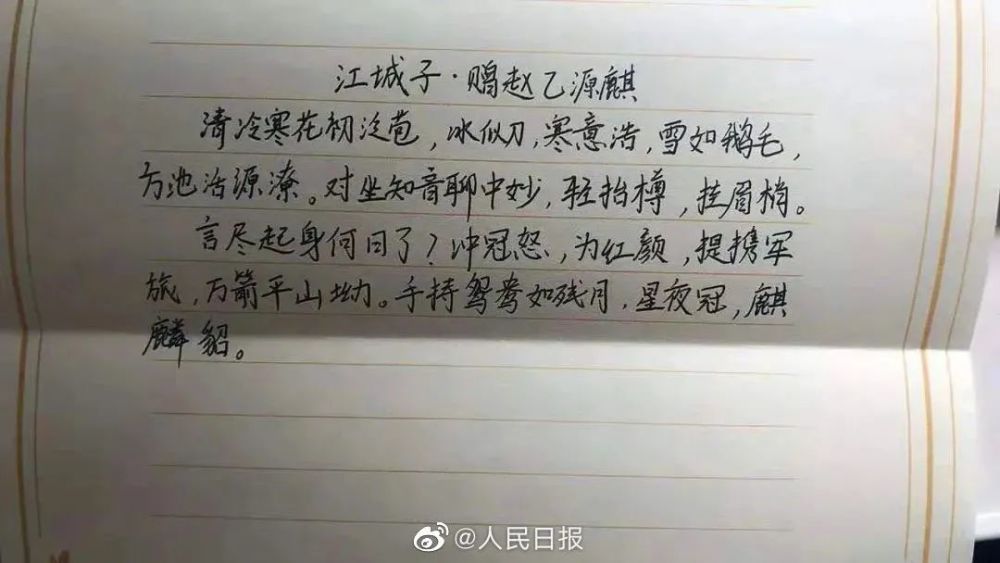 江城子·赠赵乙源麒
清冷寒花初泛苞，冰似刀，寒意浩，雪如鹅毛，
方池活源潦。对坐知音聊中妙，轻抬樽，挂眉梢。
言尽起身何日了？冲冠怒，为红颜，提携军
旅，万箭平山坳。手持鸳鸯如残月，星夜冠，麒
麟貂。
@人民日报